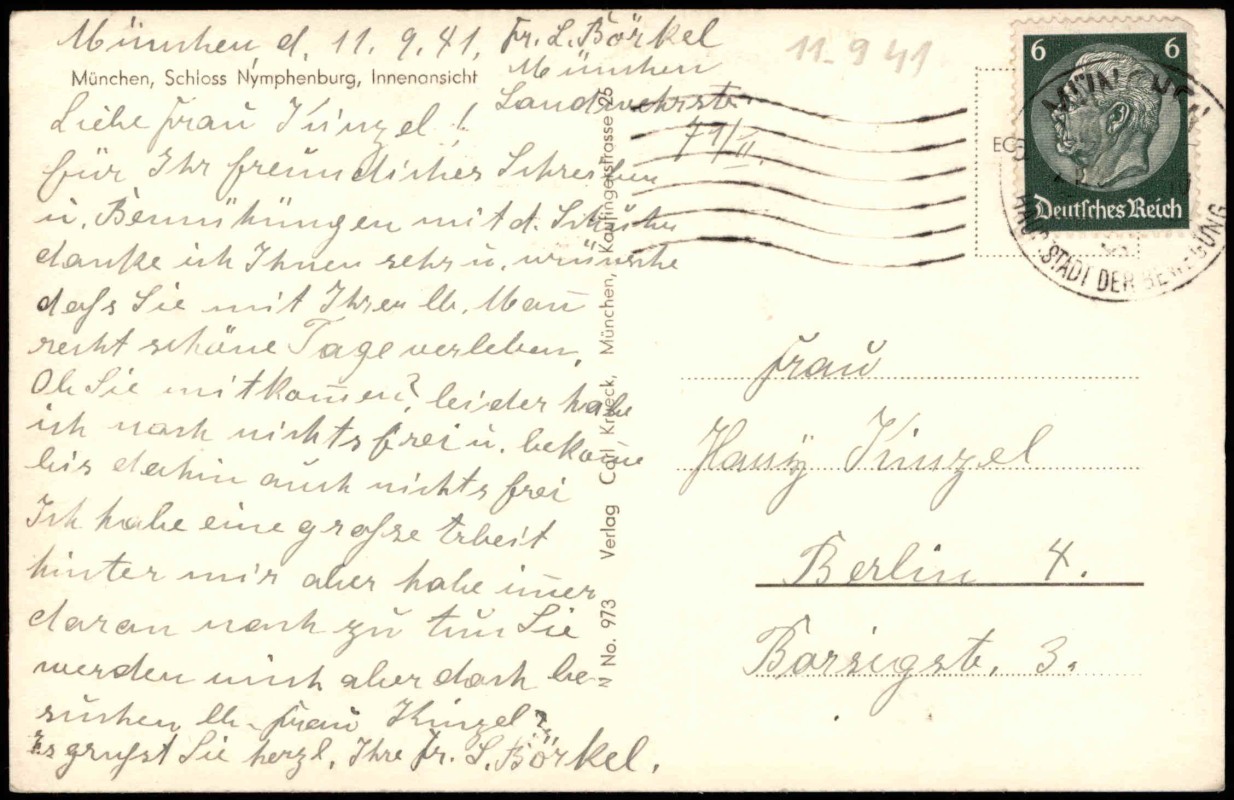 München d. 11. 9. 41.
Fr. L. Börkel
München
Landwehrstr.
79/II.
11-9 41
München, Schloss Nymphenburg, Innenansicht
Liebe Frau Kinzel!
für Ihr freundliches Schreiben
u. Bemühungen mit d. Schuhe
danke ich Ihnen sehr u. wünsche
daß Sie mit Ihren lb. Mañ
recht schöne Tage verleben.
Ob Sie mitkom̄en? leider habe
ich noch nichts frei u. bekom̄e
bis dahin auch nichts frei
Ich habe eine große Arbeit
hinter mir aber habe im̄er
daran noch zu tun Sie
werden mich aber doch be=
suchen, lb. Frau Kinzel?
Es grüßt Sie herzl. Ihre Fr. L. Börkel.
No. 973 Verlag Carl Krieck, München, Kaufingerstrasse 25
6 6
Deutsches Reich
MÜNCHEN
HAUPTSTADT DER BEWEGUNG
Frau
Kinzel
Berlin 4.
Borsigstr. 3.